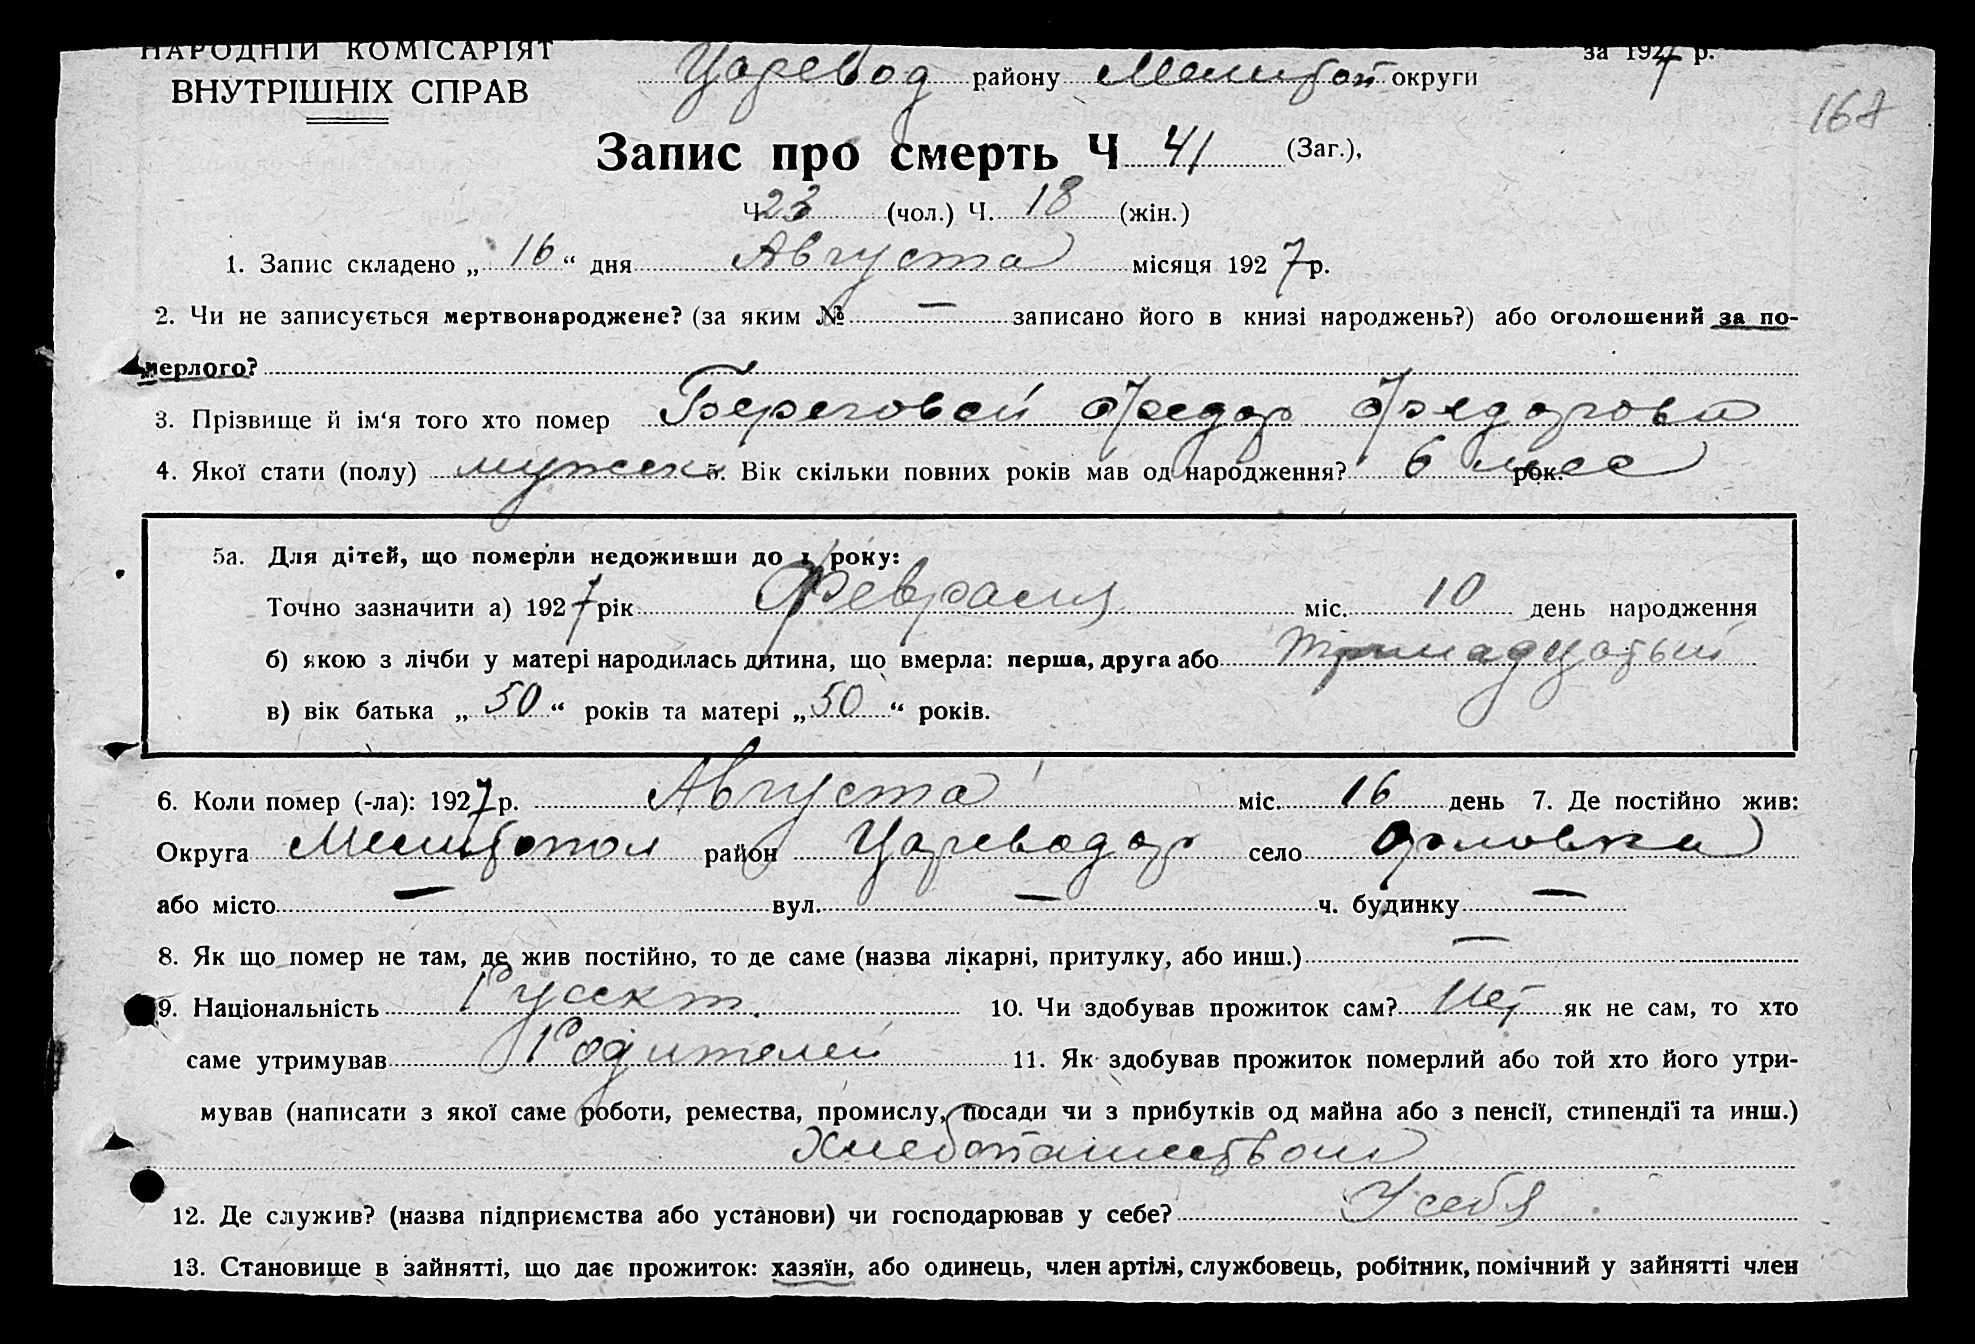 НАРОДНІЙ КОМІСАРІЯТ
ВНУТРІШНІХ СПРАВ
за 1927 р.
Царевод району Мелитоп округи
167
Запис про смерть Ч 41 (Заг.),
Ч 23 (чол.) Ч. 18 (жін.)
1. Запис складено „ 16 “ дня Августа місяця 1927 р.
2. Чи не записується мертвонароджене? (за яким № — записано його в книзі народжень?) або оголошений за по-
мерлого?
3. Прізвище й ім'я того хто помер Береговой Федор Федорови
4. Якої стати (полу) мужск 5. Вік скільки повних років мав од народження? 6 мес рок.
5а. Для дітей, що померли недоживши до 1 року:
Точно зазначити а) 1927 рік Февраля міс. 10 день народження
б) якою з лічби у матері народилась дитина, що вмерла: перша, друга або тринадцатый
в) вік батька „ 50 “ років та матері „ 50 “ років.
6. Коли помер (-ла): 1927 р. Августа міс. 16 день 7. Де постійно жив:
Округа Мелитопол район Цареводар село Орловка
або місто — вул. — ч. будинку —
8. Як що помер не там, де жив постійно, то де саме (назва лікарні, притулку, або инш.) —
9. Національність Русск 10. Чи здобував прожиток сам? Нет як не сам, то хто
саме утримував Родителей 11. Як здобував прожиток померлий або той хто його утри-
мував (написати з якої саме роботи, ремества, промислу, посади чи з прибутків од майна або з пенсії, стипендії та инш.)
Хлебопашеством
12. Де служив? (назва підприємства або установи) чи господарював у себе? У себя
13. Становище в зайнятті, що дає прожиток: хазяїн, або одинець, член артілі, службовець, робітник, помічний у зайнятті член